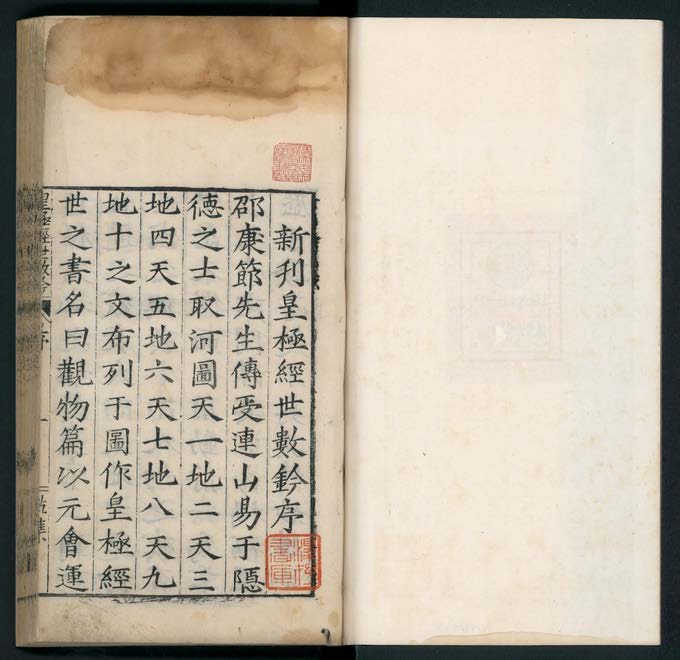 新刊皇極經世數鈐序
邵康節先生傳受連山易于隱
德之士取河圖天一地二天三
地四天五地六天七地八天九
地十之文布列于圖作皇極經
世之書名曰觀物篇以元會運
皇極經世數鈐
序
乾集